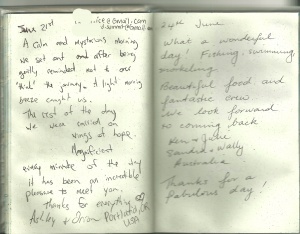 June 21st
@Gmail.com
A calm and mysterious morning
we set out and after being
gently reminded not to over
the journey. A light morning
breeze caught us.
The rest of the day
we were carried on
wings of hope.
Magnificent
every minute of the day
It has been an incredible
pleasure to meet you.
Thanks for everything
Ashley + Brian Portland, OR
USA
24th June
What a wonderful
day! Fishing, swimming
snorkeling.
Beautiful food and
fantastic crew
We look forward
to coming back
Ken + Julie
Sandra + Wally
Australia
Thanks for a
fabulous day!